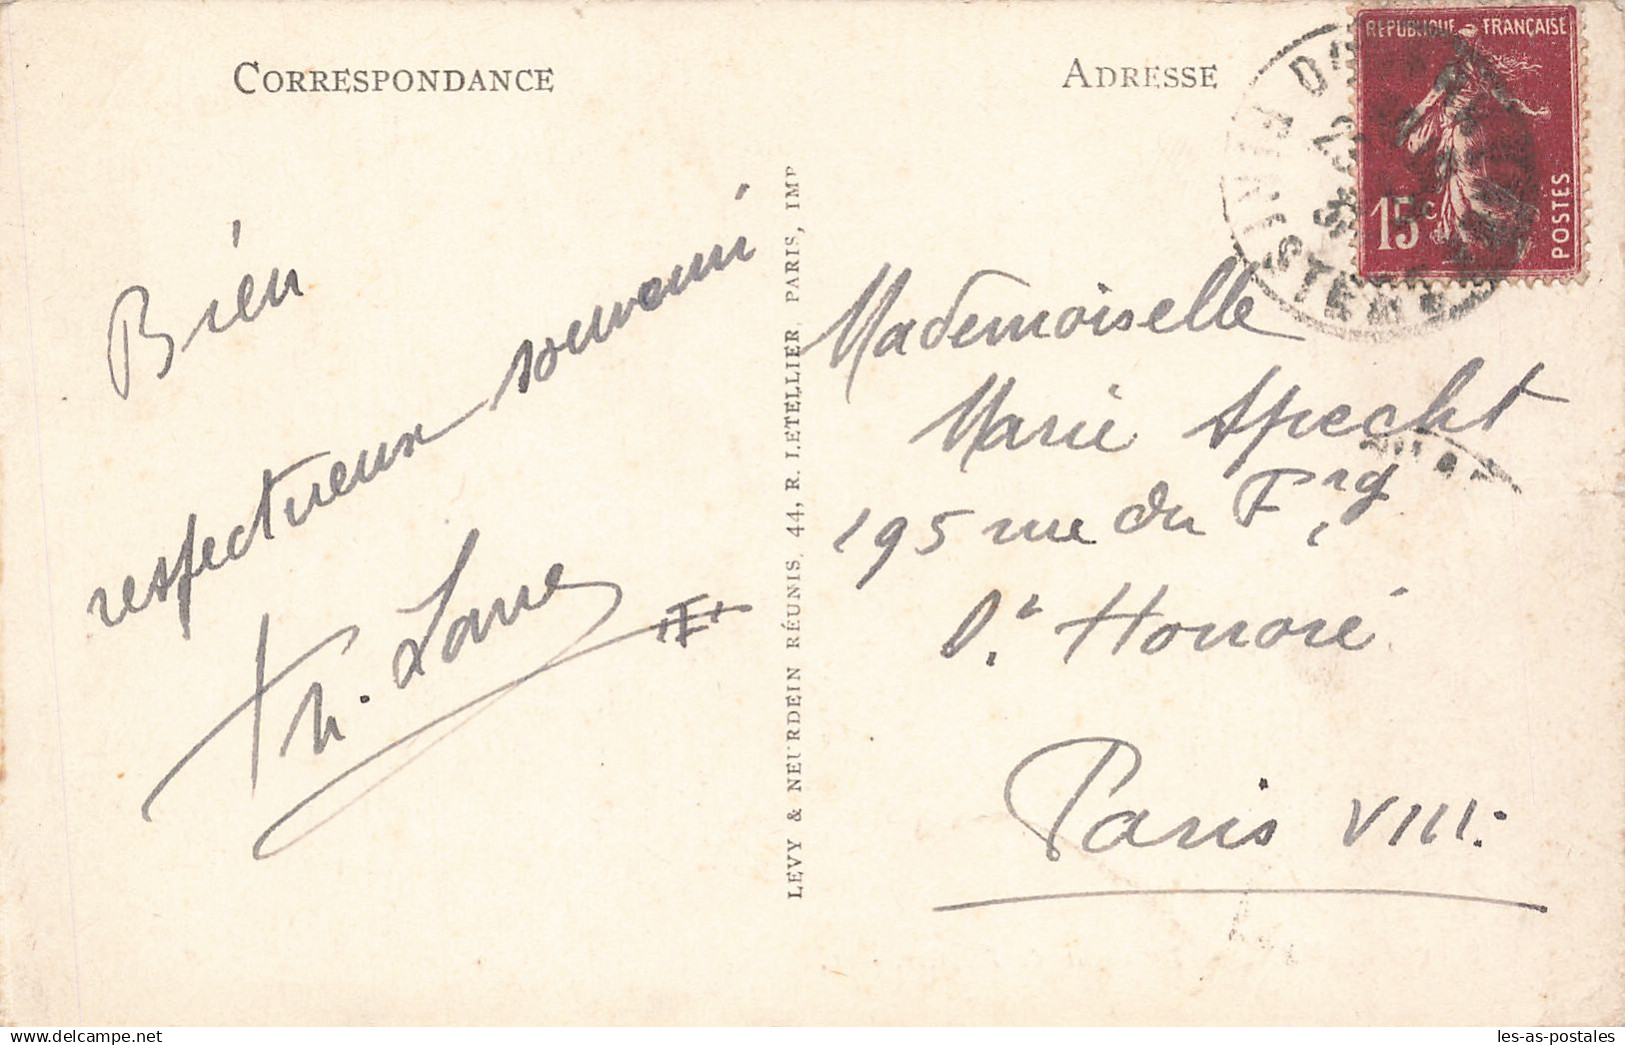 CORRESPONDANCE
ADRESSE
RÉPUBLIQUE FRANÇAISE
15c
POSTES
FINISTERE
Bien
respectueux souvenir
LEVY & NEURDEIN RÉUNIS, 44, R. LETELLIER, PARIS, IMP
Mademoiselle
Marie Specht
195 rue du Frg
St Honoré
Paris VIII.
les-as-postales